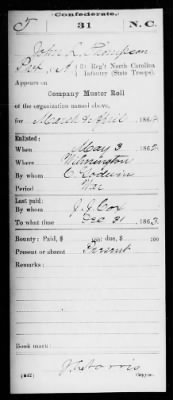 Confederate.
T 31 N.C.
John L. Thompson
Pvt, Co. A, 31 Reg't North Carolina
Infantry (State Troops).
Appears on
Company Muster Roll
of the organization named above,
for March & April, 186
Enlisted:
When May 3, 186
Where Wilmington
By whom C. Godwin
Period War
Last paid:
By whom J. J. Cox
To what time Dec 31, 186
Bounty: Paid, $ 100; due, $ 100
Present or absent Present
Remarks:
Book mark:
(642) Copyist.